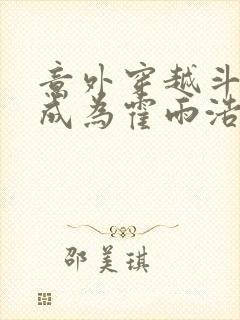 意外穿越斗
成为霍雨浩
邵美琪